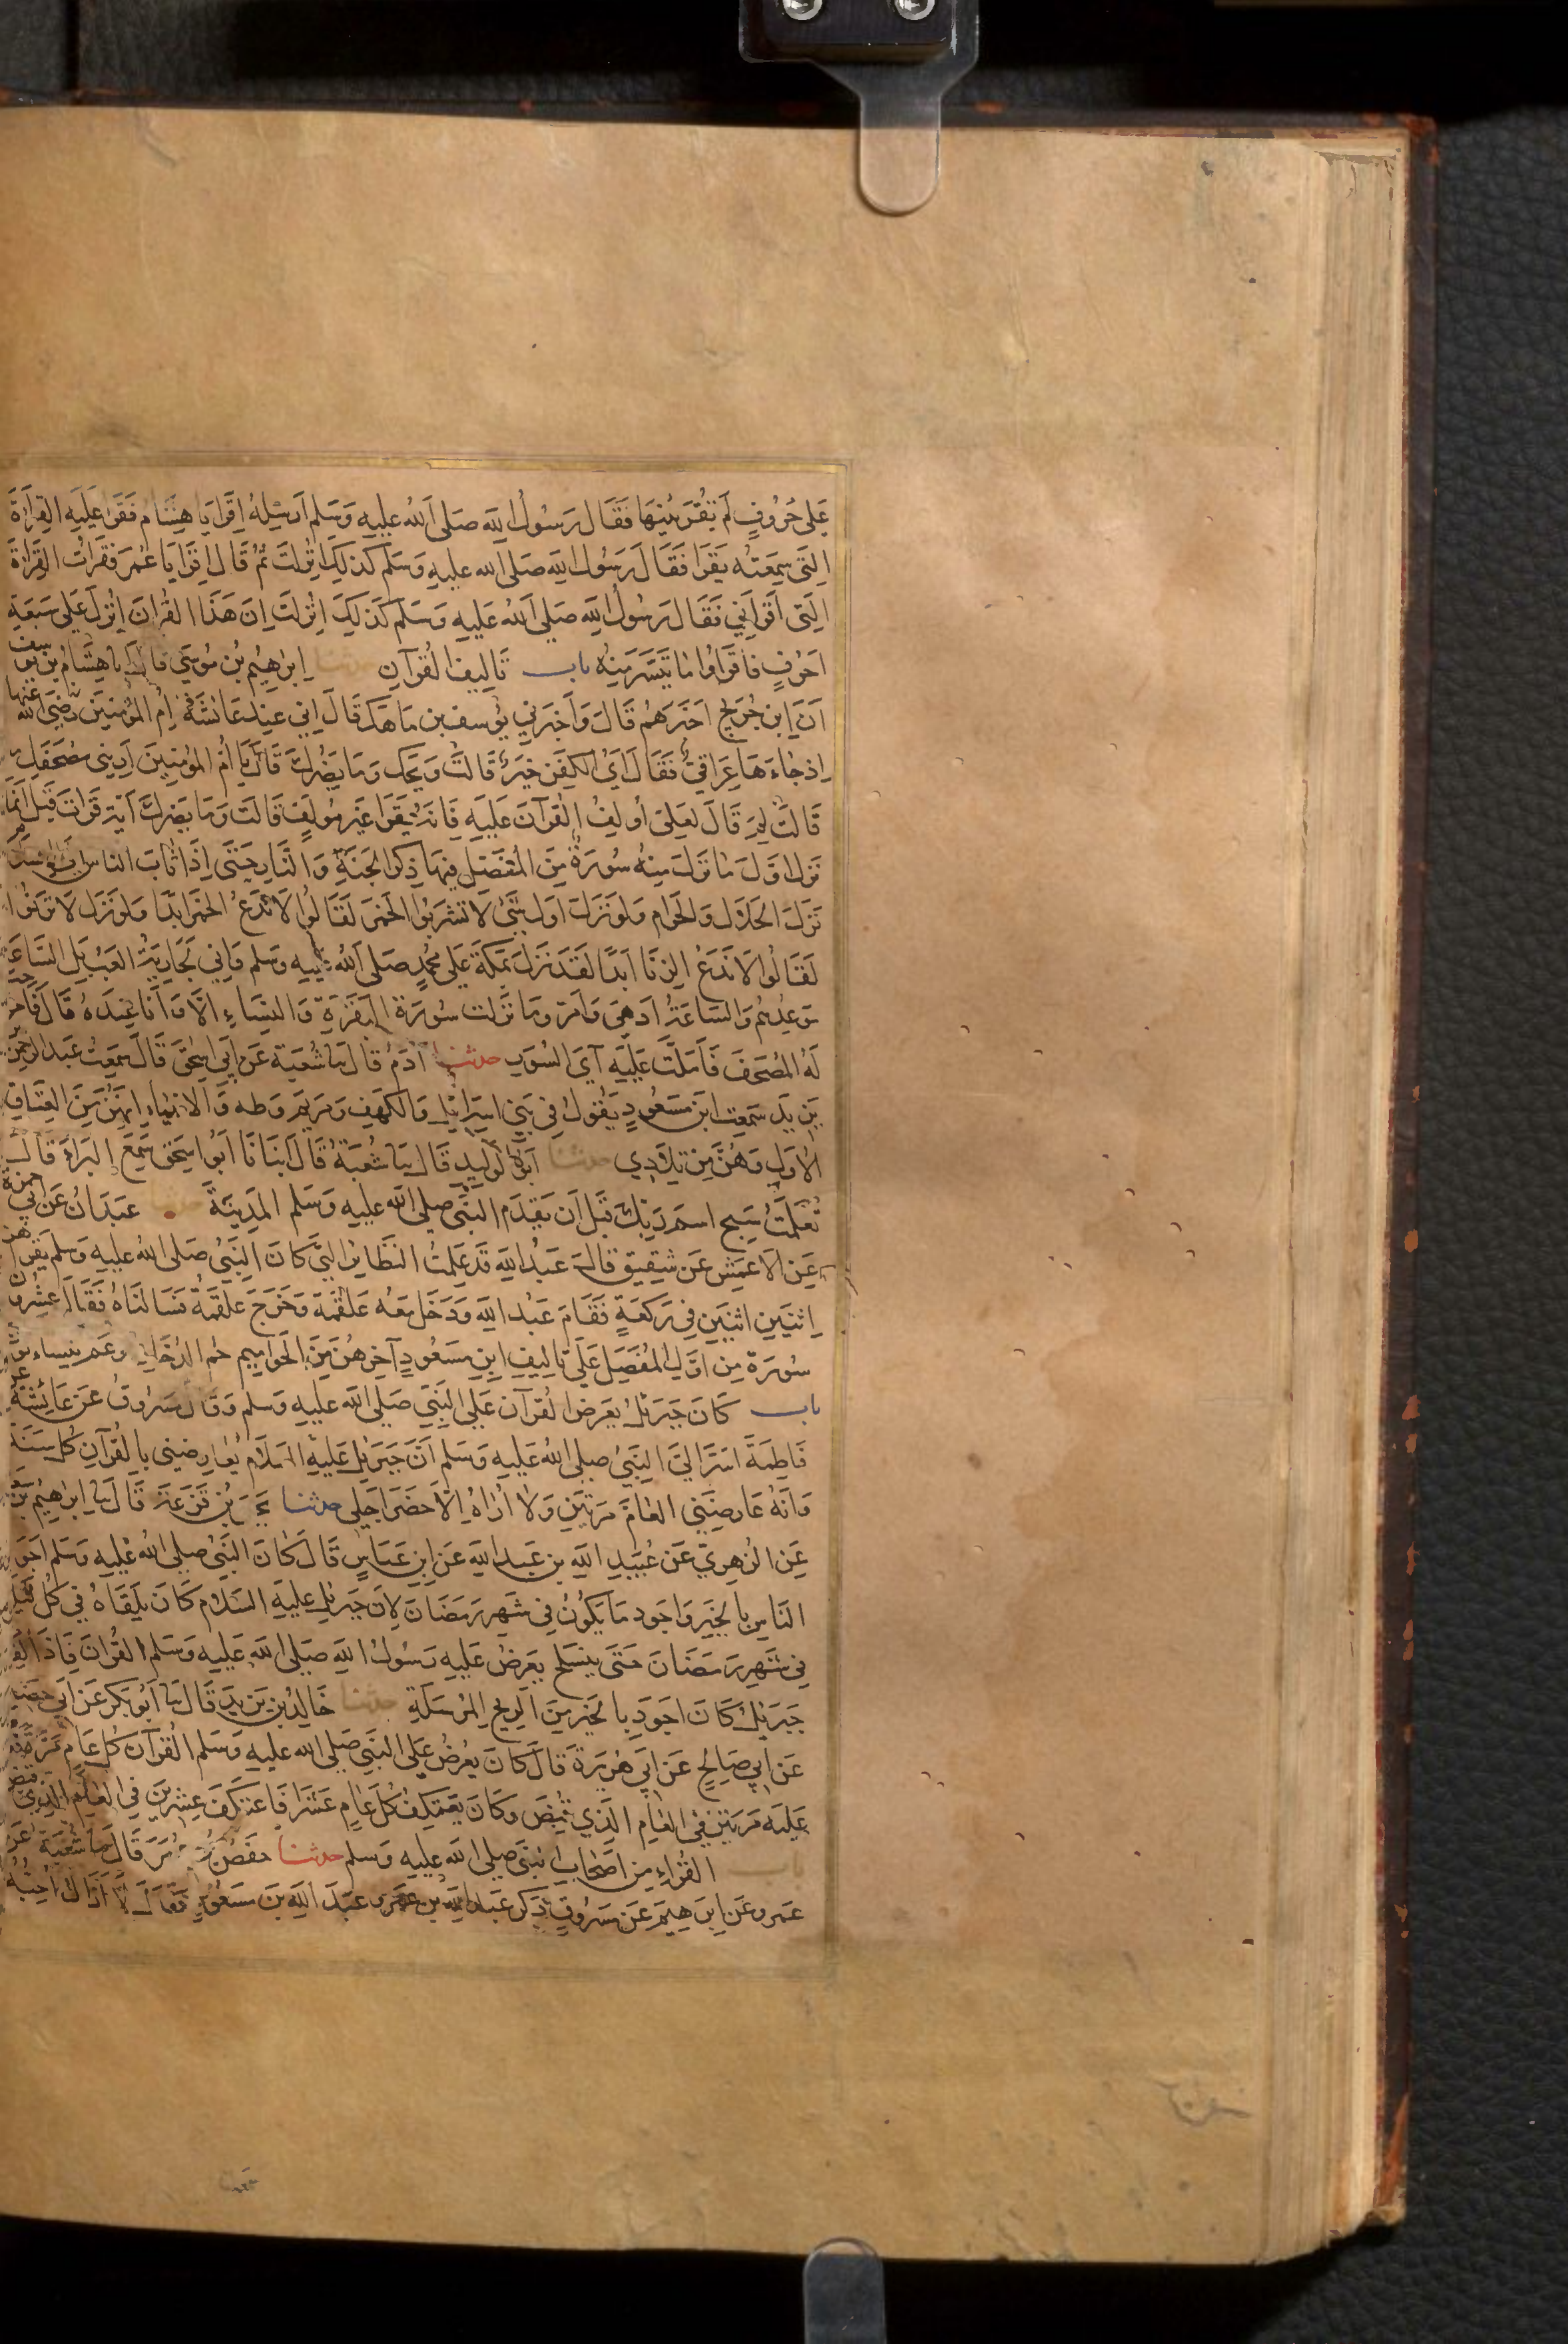 عَلى حُرُوفٍ لَم تُقْرِئنِيهَا فَقَالَ رَسُولُ اللهِ صَلى اللهُ عليهِ وَسَلم اَرْسِلهُ اِقرَا يَا هِشَام فَقَرا عَليهِ القِرَاءَةَ
الَّتى سَمِعتُه يَقرَا فَقَالَ رَسُولُ اللهِ صَلى الله عليهِ وَسَلم كَذلِكَ انزِلَت ثُمَّ قَالَ اِقرَا يَا عُمَر فَقَرَاتُ القِرَاءَةَ
الَّتى اَقرَاَنِي فَقَالَ رَسُولُ اللهِ صَلى اللهُ عَليهِ وَسَلم كَذلِكَ اُنزِلَت اِنَّ هَذَا القُرانَ اُنزِلَ عَلى سَبعَةِ
اَحرُفٍ فَاقرَاوُا مَا تَيَسَّرَ مِنهُ باب تَالِيف القُرآنِ حدثنا اِبرٰهِيمُ بن مُوسَى قَالَ نا هِشَامُ بن يوسف
اَنَّ اِبنَ جُرَيجٍ اَخبَرَهُم قَالَ وَاَخبَرَنِي يُوسفُ بن مَاهَك قَالَ اِنِي عِندَ عَائشَةَ اُم المُؤمِنِين رَضِيَ اللهُ عَنهَا
اِذ جَاءَهَا عِرَاقِيٌّ فَقَالَ اَيُّ الكَفَنِ خَيرٌ قَالَت وَيحَك وَمَا يَضُرُّكَ قَالَ يَا اُمَّ المُؤمِنِينَ اَرِينِى مُصحَفَكِ
قَالَت لِمَ قَالَ لَعَلِىّ اُولِفُ القُرآنَ عَلَيهِ فَاِنَّه يُقرَا غَيرَ مُولَّفٍ قَالَت وَمَا يَضُرُّكَ اَيَّه قَرَاتَ قَبلُ اِنَّمَا
نَزَلَ اَوَّلَ مَا نَزَلَ مِنهُ سُورَةٌ مِنَ المُفَصَّلِ فِيهَا ذِكرُ الجَنَّةِ وَالنَّارِ حَتَّى اِذَا ثَابَ النَاسُ
نَزَلَ الحَلَالُ وَالحَرَام وَلَو نَزَلَ اَوّلَ شَىْءٍ لَا تَشرَبُوا الخَمرَ لَقَالُوا لَا نَدَعُ الخَمرَ اَبَدًا وَلَو نَزَلَ لَا تَزنُوا
لَقَالُوا لَا نَدَعُ الزِنَا اَبَدًا لَقَد نَزَلَ بِمَكَّةَ عَلى مُحَمَّدٍ صَلى اللهُ عليهِ وسَلم وَاِنِي لَجَارِيَةٌ اَلعَبُ بَلِ السَّاعَةُ
مَوعِدُهُم وَالسَاعَةُ اَدهَى وَاَمَرّ وَمَا نَزَلَت سُورَة البَقَرَةِ وَالنِسَاءِ اِلَّا وَاَنَا عِندَهُ قَالَ فَاَخرَجَت
لَهُ المُصحَفَ فَاَملَت عَلَيهِ آيَ السُوَرِ حدثنا آدَمُ قَالَ نا شُعبَة عَن اَبِي اِسحٰقَ قَالَ سَمِعتُ عَبدَ الرَحمٰن
بنَ يَزِيدَ سَمِعتُ ابنَ مَسعُودٍ يَقُولُ فِي بَنِي اِسرَائيلَ وَالكَهفِ وَمَريَمَ وَطه وَالاَنبِيَاءِ اِنَّهُنَّ مِنَ العِتَاقِ
الاُوَلِ وَهُنَّ مِن تِلَادِي حدثنا اَبُو الوَلِيدِ قَالَ نا شُعبَةُ قَالَ اَنبَانَا اَبُو اِسحٰقَ سَمِعَ البَرَاءَ قَالَ
تَعَلَّمتُ سَبِح اسمَ رَبِكَ قَبلَ اَن يَقدَمَ النَّبِى صلى الله عليهِ وَسَلم المَدِينَةَ عَبدَانُ عَن اَبِي حَمزَة
عَنِ الاَعمَشِ عَن شَقِيقٍ قَالَ عَبدُ اللهِ قَد عَلِمتُ النَّظَائرَ الَّتى كَانَ النَّبِيُّ صَلى اللهُ عليهِ وَسَلم يَقرَاهُنَّ
اِثنَينِ اثنَينِ فِي رَكعَةٍ فَقَامَ عَبدُ اللهِ وَدَخَلَ مَعَه عَلقَمَة وَخَرَجَ عَلقَمَةُ فَسَالنَاهُ فَقَالَ عِشرُونَ
سُورَة مِن اَوَّلِ المُفَصَّلِ عَلَى تَالِيفِ ابنِ مَسعُودٍ آخِرهُنَّ مِنَ الحَوامِيم حم الدُخَان وَعَم يتساءلون
باب كَانَ جَبرَئلُ يَعرِضُ القُرآن عَلى النَّبِي صَلى اللهُ عليهِ وسَلم وَقَالَ مَسرُوقٌ عَن عَائِشَةَ عَن
فَاطِمَةَ اَسَرَّ اِلَيَّ النَّبِيُّ صَلى اللهُ عَليهِ وَسَلم اَنَّ جَبرَئلَ عَلَيهِ السَلَام يُعَارِضُنِى بِالقُرآنِ كُل سَنَةٍ
وَاَنَّهُ عَارَضَنِى العَامَ مَرَّتَينِ وَلَا اُرَاهُ اِلَّا حَضَرَ اَجَلِى حدثنا يَحيَى بنُ قَزَعَة قَالَ نا اِبرٰهِيمُ بن سَعد
عَنِ الزُهرِيّ عَن عُبَيدِ اللهِ بن عَبدِ اللهِ عَنِ ابنِ عَبَاسٍ قَالَ كَانَ النَّبِيُّ صلى الله عَليهِ وَسَلم اَجوَدَ
النَّاسِ بِالخَيرِ وَاَجوَد مَا يَكُونُ فِي شَهرِ رَمَضَانَ لِاَنَّ جَبرَئلَ عَلَيهِ السَلَام كَانَ يَلقَاهُ فِي كُل لَيلَةٍ
فِي شَهرِ رَمَضَانَ حَتَّى يَنسَلِخ يَعرِضُ عَلَيهِ رَسُولُ اللهِ صَلى الله عَليهِ وَسَلم القُرانَ فَاِذَا لَقِيَه
جَبرَئلُ كَانَ اَجوَدَ بِالخَيرِ مِنَ الرِيحِ المُرسَلَةِ حدثنا خَالِدُ بن يَزِيدَ قَالَ نا اَبُو بَكرٍ عَن اَبِي حَصِين
عَن اَبِي صَالِحٍ عَن اَبِي هُرَيرَةَ قَالَ كَانَ يَعرِضُ عَلَى النَّبِيّ صَلى الله عليهِ وَسلم القُرآنَ كُلّ عَامٍ مَرَّة فَعَرَض
عَلَيهِ مَرَّتَينِ فِي العَامِ الَّذِي قُبِضَ وَكَانَ يَعتَكِفُ كُلّ عَامٍ عَشرًا فَاعتَكَفَ عِشرِينَ فِي العَامِ الَّذِي قُبِض
باب القُرَّاءِ مِن اَصحَابِ النَّبِى صَلى الله عليهِ وَسلم حدثنا حَفصُ بن عُمَرَ قَالَ نا شُعبَة عَن
عَمرو عَن اِبرٰهِيمَ عَن مَسرُوقٍ ذَكَرَ عَبدُ اللهِ بن عَمرو عَبدَ اللهِ بنَ مَسعُودٍ فَقَالَ لَا اَزَالُ اُحِبُّهُ